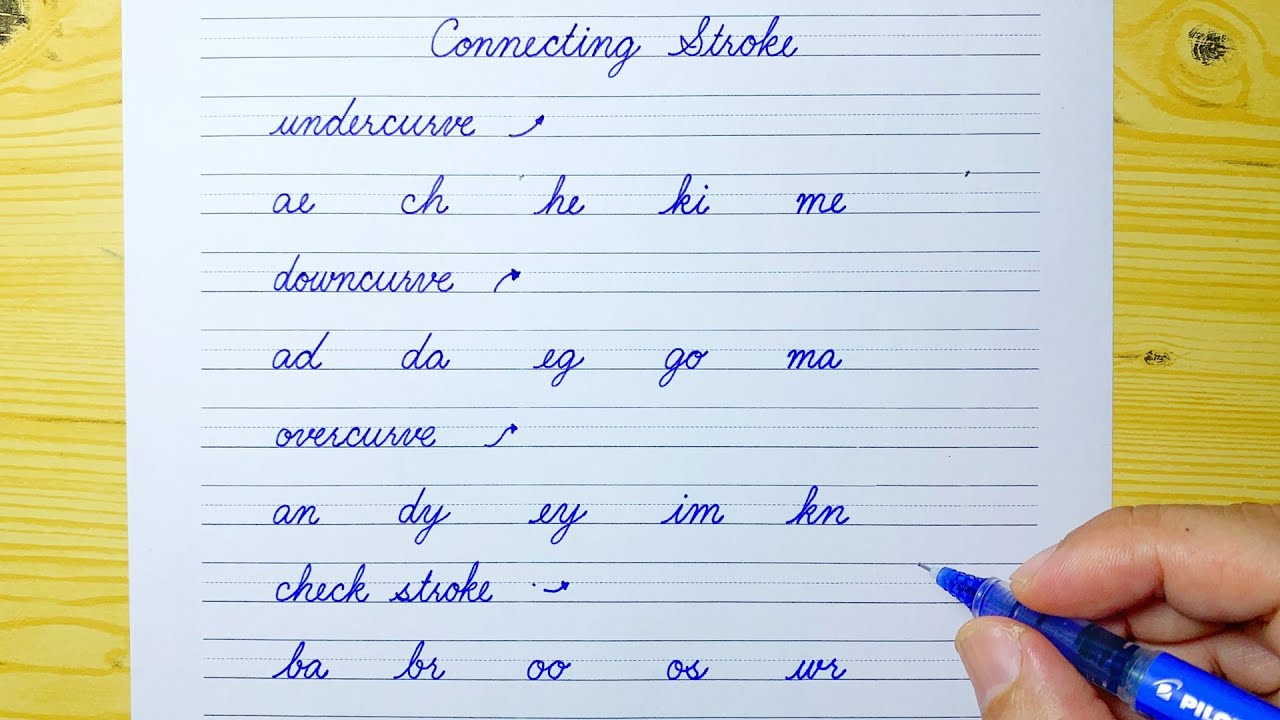 Connecting Stroke
undercurve
ae ch he ki me
downcurve
ad da eg go ma
overcurve
an dy ey im kn
check stroke
ba br oo os wr
PILO